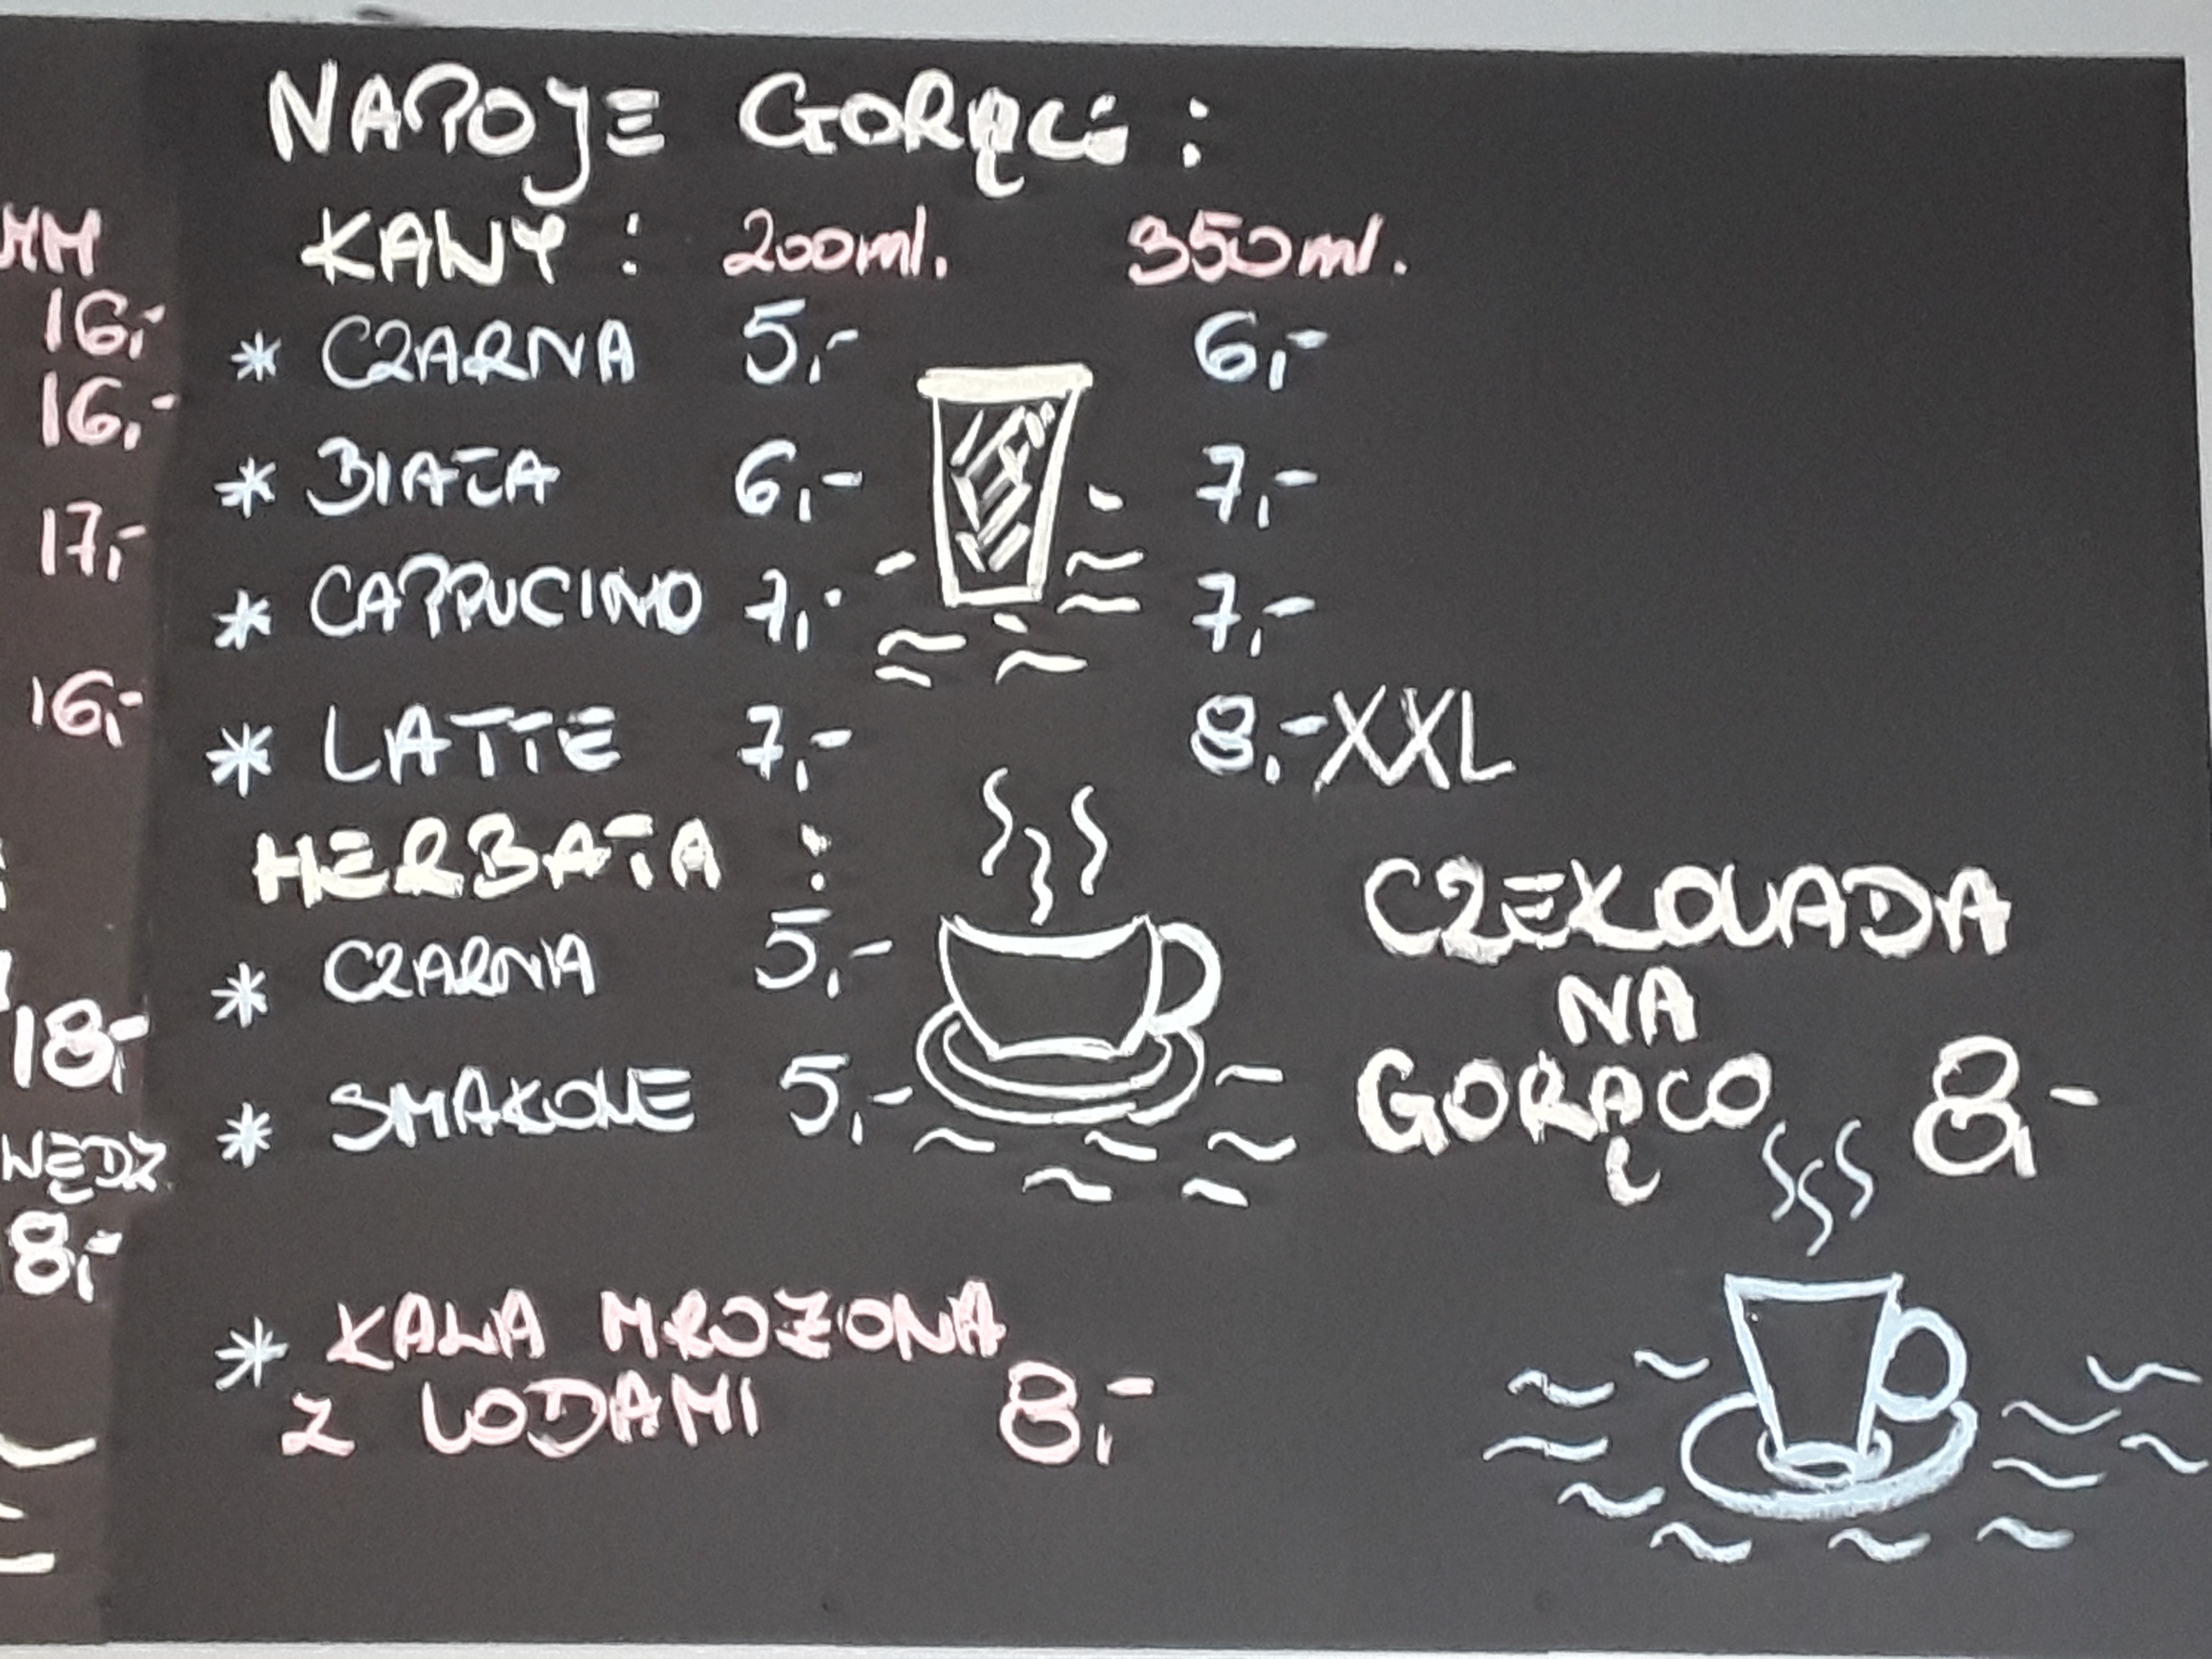 NAPOJE GORĄCE :
KAWY : 200ml. 350ml.
* CZARNA 5,- 6,-
* BIAŁA 6,- 7,-
* CAPPUCINO 7,- 7,-
* LATTE 7,- 8,- XXL
HERBATA :
* CZARNA 5,-
* SMAKOWE 5,-
CZEKOLADA
NA
GORĄCO 8,-
* KAWA MROŻONA
Z LODAMI 8,-
16,-
16,-
17,-
16,-
18,-
WĘDZ.
8,-